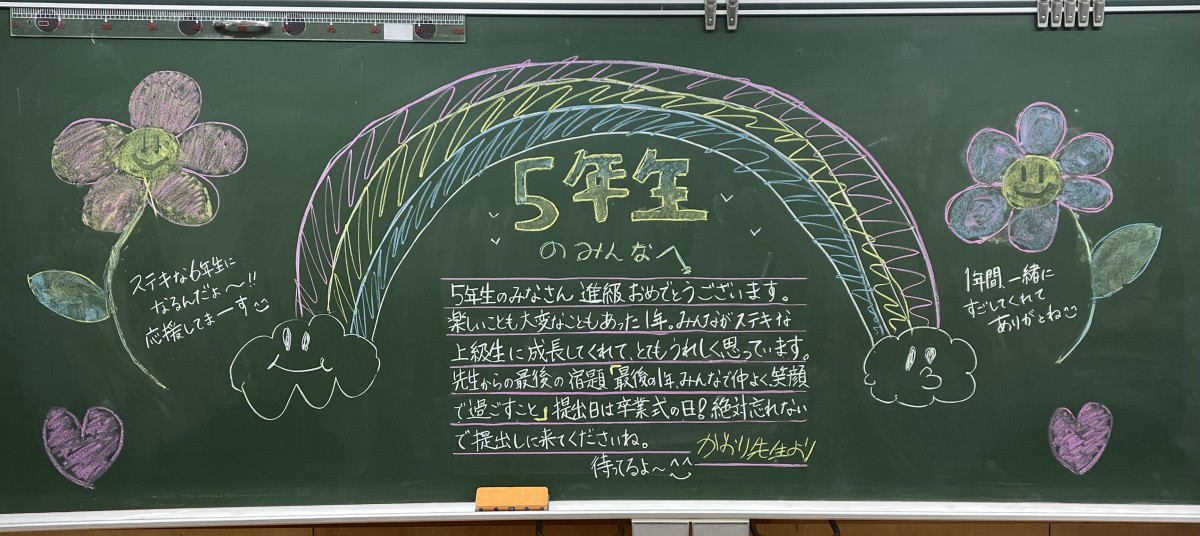 5年生
のみんなへ
5年生のみなさん 進級おめでとうございます。
楽しいことも大変なこともあった1年。みんながステキな
上級生に成長してくれて、とてもうれしく思っています。
先生からの最後の宿題「最後の1年、みんなで仲よく、笑顔
で過ごすこと」提出日は卒業式の日!絶対忘れない
で提出しに来てくださいね。
かおり先生より
待ってるよ〜^^
ステキな6年生に
なるんだょ〜!!
応援してまーす
1年間、一緒に
すごしてくれて
ありがとね